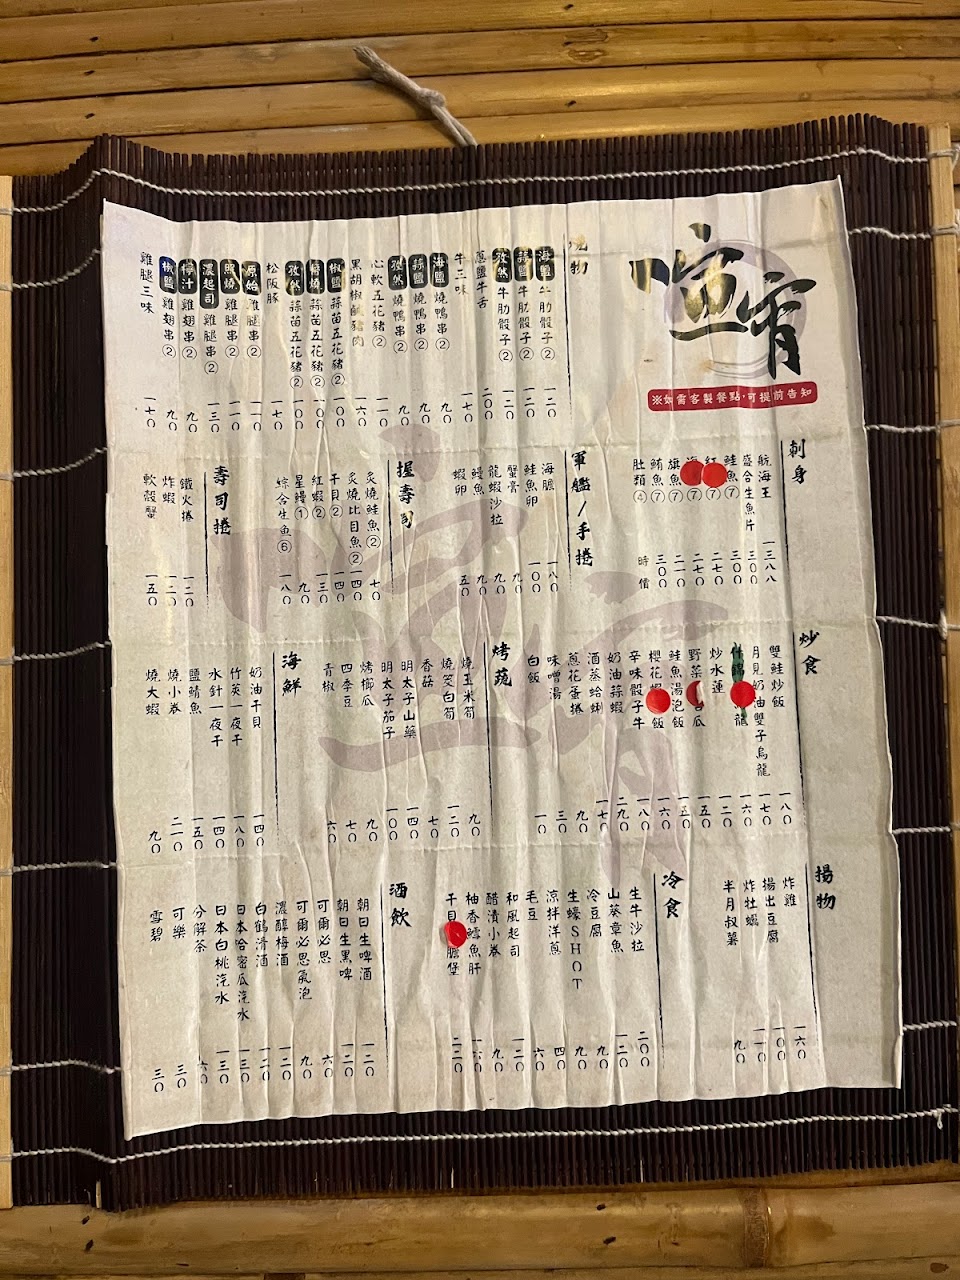 喧宵
※如需客製餐點,可提前告知
燒物
海鹽 牛肋骰子② 一二〇
蒜鹽 牛肋骰子② 一二〇
孜然 牛肋骰子② 一二〇
蔥鹽牛舌 二〇〇
牛三味 一七〇
海鹽 燒鴨串② 九〇
蒜鹽 燒鴨串② 九〇
孜然 燒鴨串② 九〇
心軟五花豬② 一一〇
黑胡椒鹹豬肉 一六〇
椒鹽 蒜苗五花豬② 一〇〇
醬燒 蒜苗五花豬② 一〇〇
孜然 蒜苗五花豬② 一〇〇
松阪豚 一七〇
原始 雞腿串② 九〇
照燒 雞腿串② 九〇
濃起司 雞腿串② 一三〇
檸汁 雞翅串② 九〇
椒鹽 雞翅串② 九〇
雞腿三味 一七〇
刺身
航海王 一三八八
盛合生魚片 三〇〇
鮭魚⑦ 三〇〇
紅 ⑦ 二七〇
海 ⑦ 二七〇
旗魚⑦ 二一〇
鮪魚⑦ 三〇〇
肚類④ 時價
軍艦/手捲
海膽 一八〇
鮭魚卵 一〇〇
蟹膏 九〇
龍蝦沙拉 九〇
鰻魚 九〇
蝦卵 五〇
握壽司
炙燒鮭魚② 七〇
炙燒比目魚② 一四〇
干貝② 一四〇
紅蝦② 一三〇
星鰻① 九〇
綜合生魚⑥ 一八〇
壽司捲
鐵火捲 一二〇
炸蝦 一二〇
軟殼蟹 一五〇
炒食
雙鮭炒飯 一八〇
月見奶油雙子烏龍 一七〇
什錦 龍 一六〇
炒水蓮 一二〇
野菜 瓜 一五〇
鮭魚湯泡飯 一五〇
櫻花蝦 飯 一六〇
辛味骰子牛 一八〇
奶油蒜蝦 二九〇
酒蒸蛤蜊 一七〇
蔥花蛋捲 九〇
味噌湯 三〇
白飯 一〇
烤蔬
燒玉米筍 九〇
燒筊白筍 一二〇
香菇 七〇
明太子山藥 一四〇
明太子茄子 一〇〇
烤櫛瓜 九〇
四季豆 七〇
青椒 六〇
海鮮
奶油干貝 一四〇
竹筴一夜干 一八〇
水針一夜干 一四〇
鹽鯖魚 一五〇
燒小卷 二一〇
燒大蝦 九〇
揚物
炸雞 一六〇
揚出豆腐 一〇〇
炸牡蠣 一一〇
半月叔薯 九〇
冷食
生牛沙拉 二〇〇
山葵章魚 一二〇
冷豆腐 九〇
生蠔SHOT 九〇
涼拌洋蔥 四〇
毛豆 六〇
和風起司 一二〇
醋漬小卷 九〇
柚香鱈魚肝 一六〇
干貝 膽堡 二二〇
酒飲
朝日生啤酒 一二〇
朝日生黑啤 一二〇
可爾必思 六〇
可爾必思氣泡 九〇
濃醇梅酒 一二〇
白鶴清酒 一二〇
日本哈密瓜汽水 一三〇
日本白桃汽水 一三〇
分解茶 六〇
可樂 三〇
雪碧 三〇